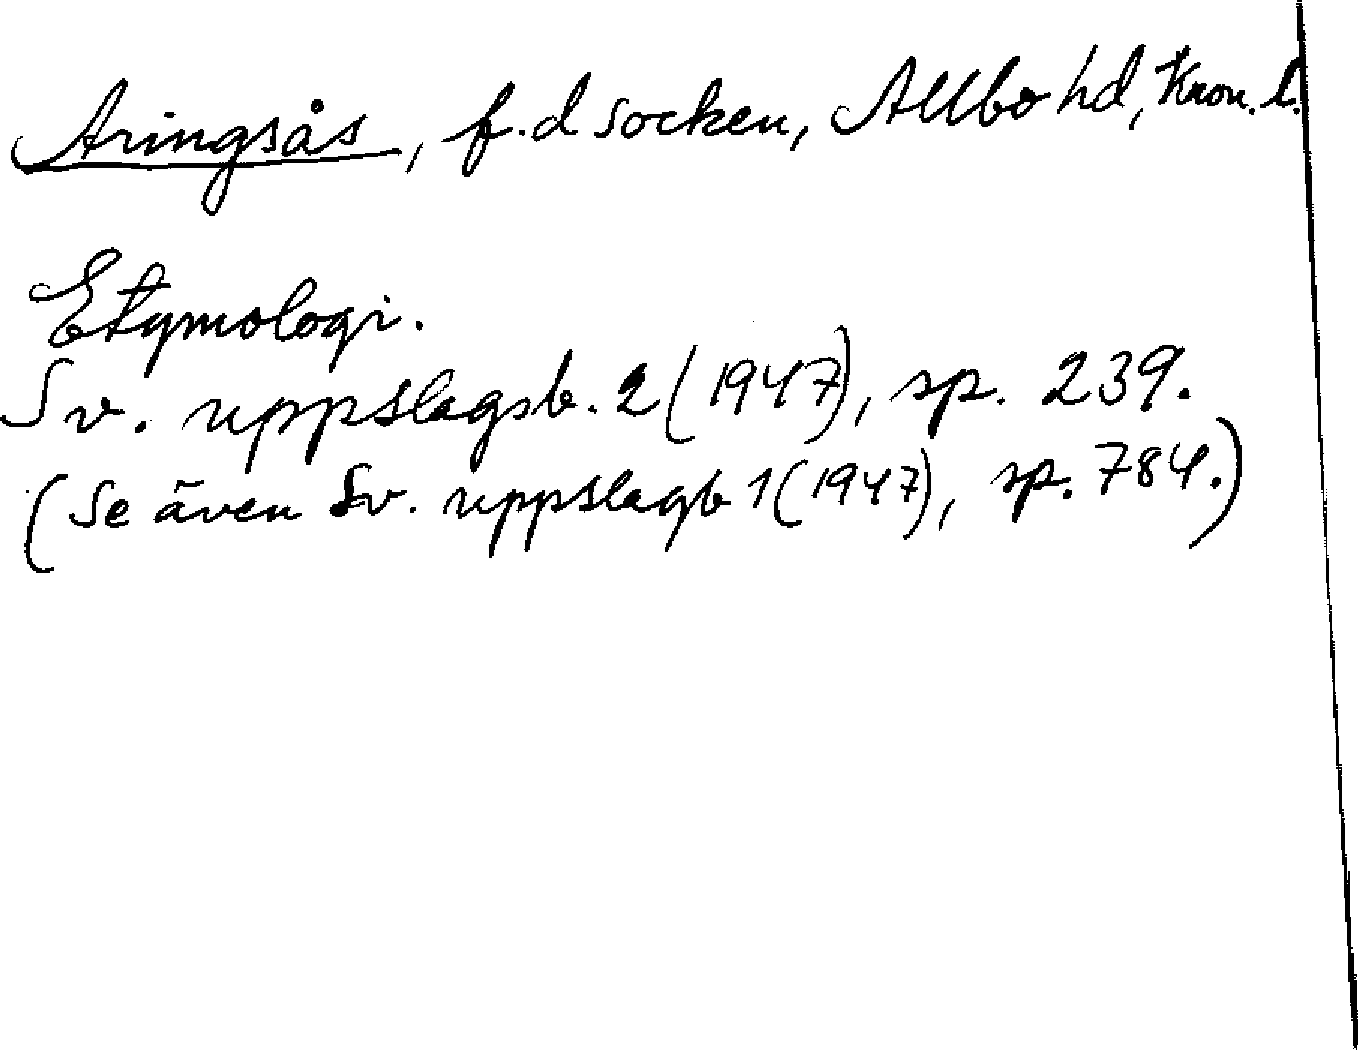 Aringsås, f.d socken, Allbo hd, Kron. l.
Etymologi.
Sv. uppslagsb. 2 (1947), sp. 239.
(Se även Sv. uppslagb 1 (1947), sp. 784.)